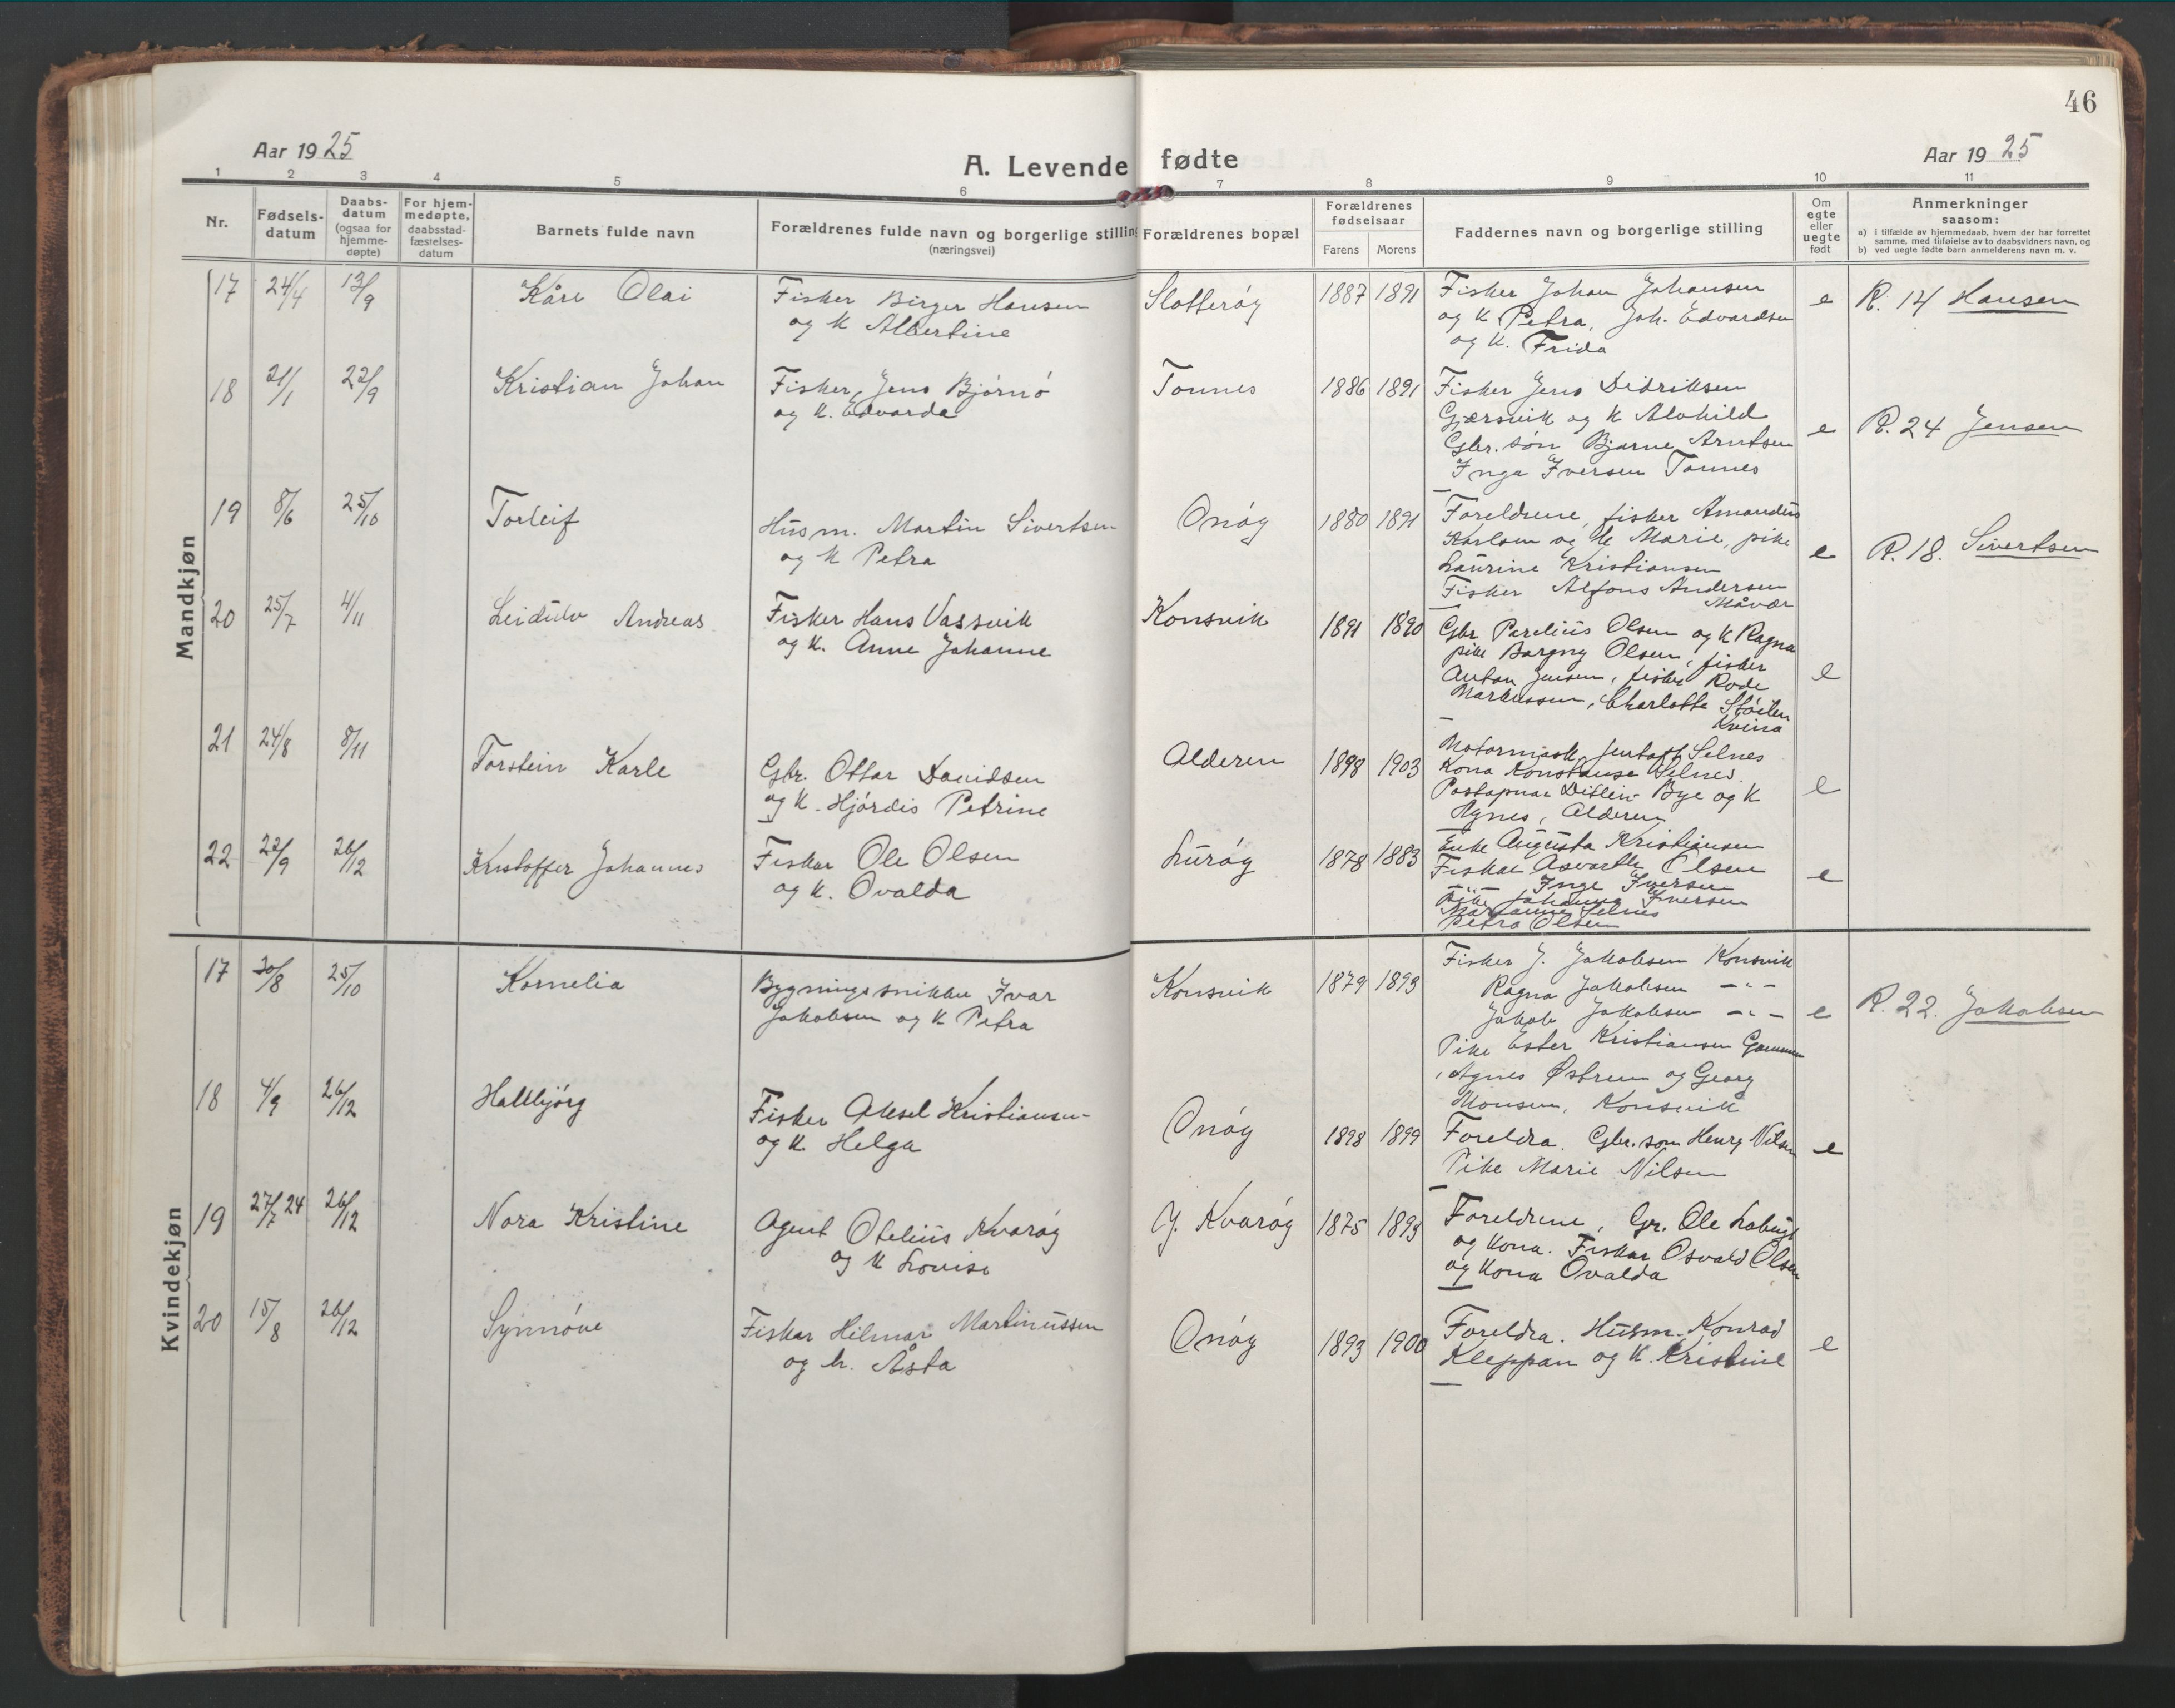 46
Aar 1925
A. Levende fødte
Aar 1925
1 2 3 4 5 6 7 8 9 10 11
Nr.
Fødsels-
datum
Daabs-
datum
(ogsaa for
hjemme-
døpte)
For hjem-
medøpte,
daabsstad-
fæstelses-
datum
Barnets fulde navn
Forældrenes fulde navn og borgerlige stilling
(næringsvei)
Forældrenes bopæl
Forældrenes
fødselsaar
Farens Morens
Faddernes navn og borgerlige stilling
Om
egte
eller
uegte
født
Anmerkninger
saasom:
a) i tilfælde av hjemmedaab, hvem der har forrettet
samme, med tilføielse av to daabsvidners navn, og
b) ved uegte fødte barn anmelderens navn m. v.
Mandkjøn
17 24/4 13/9 Kåre Olai
Fisker Birger Hansen
og K Albertine
Slotterøy 1887 1891
Fisker Johan Johansen
og K Petra, Joh. Edvardsen
og K. Frida
e R. 14 Hansen
18 21/1 22/9 Kristian Johan
Fisker, Jens Bjørnø
og K. Edvarda
Tonnes 1886 1891
Fisker Jens Didriksen
Gjærsvik og K Alvhild
Gbr. søn Bjarne Arntsen
Inga Iversen Tonnes
e R. 24 Jensen
19 8/6 25/10 Torleif
Husm. Martin Sivertsen
og K Petra
Onøy 1880 1891
Foreldrene, fisker Amandus
Karlsen og K Marie, pike
Laurine Kristiansen
Fisker Alfons Andersen
Måvær
e R. 18. Sivertsen
20 25/7 4/11 Leidulv Andreas
Fisker Hans Vassvik
og K. Anne Johanne
Konsvik 1891 1890
Gbr Perelius Olsen og K Ragna
pike Borgny Olsen, fisker
Anton Jensen, fisker Rode
Markussen, Charlotte
Kvina
e
21 24/8 8/11 Torstein Karle
Gbr. Ottar Davidsen
og K. Hjørdis Petrine
Alderen 1898 1903
Selnes
Kona Konstanse Selnes.
Postopnar Ditlev Bye og K
Agnes, Alderen
e
22 22/9 26/12 Kristoffer Johannes
Fiskar Ole Olsen
og K. Ovalda
Lurøy 1878 1883
Enke Augusta Kristiansen
Fiskar Olsen
–"– Inge Iversen
Pike Johanna Iversen
Marianne Selnes
Petra Olsen
e
Kvindekjøn
17 30/8 25/10 Kornelia
Bygningssnikker Ivar
Jakobsen og K Petra
Konsvik 1879 1893
Fisker J. Jakobsen Konsvik
Ragna Jakobsen –"–
Jakob Jakobsen –"–
Pike Ester Kristiansen
Agnes Østrem og Georg
Monsen, Konsvik
e R. 22. Jakobsen
18 4/9 26/12 Hallbjørg
Fisker Aksel Kristiansen
og K. Helga
Onøy 1898 1899
Foreldra. Gbr. son Henry Nilsen
Pike Marie Nilsen
e
19 27/7 24 26/12 Nora Kristine
Agent Otelius Kvarøy
og K Lovise
Y. Kvarøy 1875 1893
Foreldrene, Gr. Ole
og Kona. Fiskar Osvald Olsen
og Kona Ovalda
20 15/8 26/12 Synnøve
Fiskar Hilmar Martinussen
og k. Åsta
Onøy 1893 1900
Foreldra. Husm. Konrad
Kleppan og K. Kristine
e